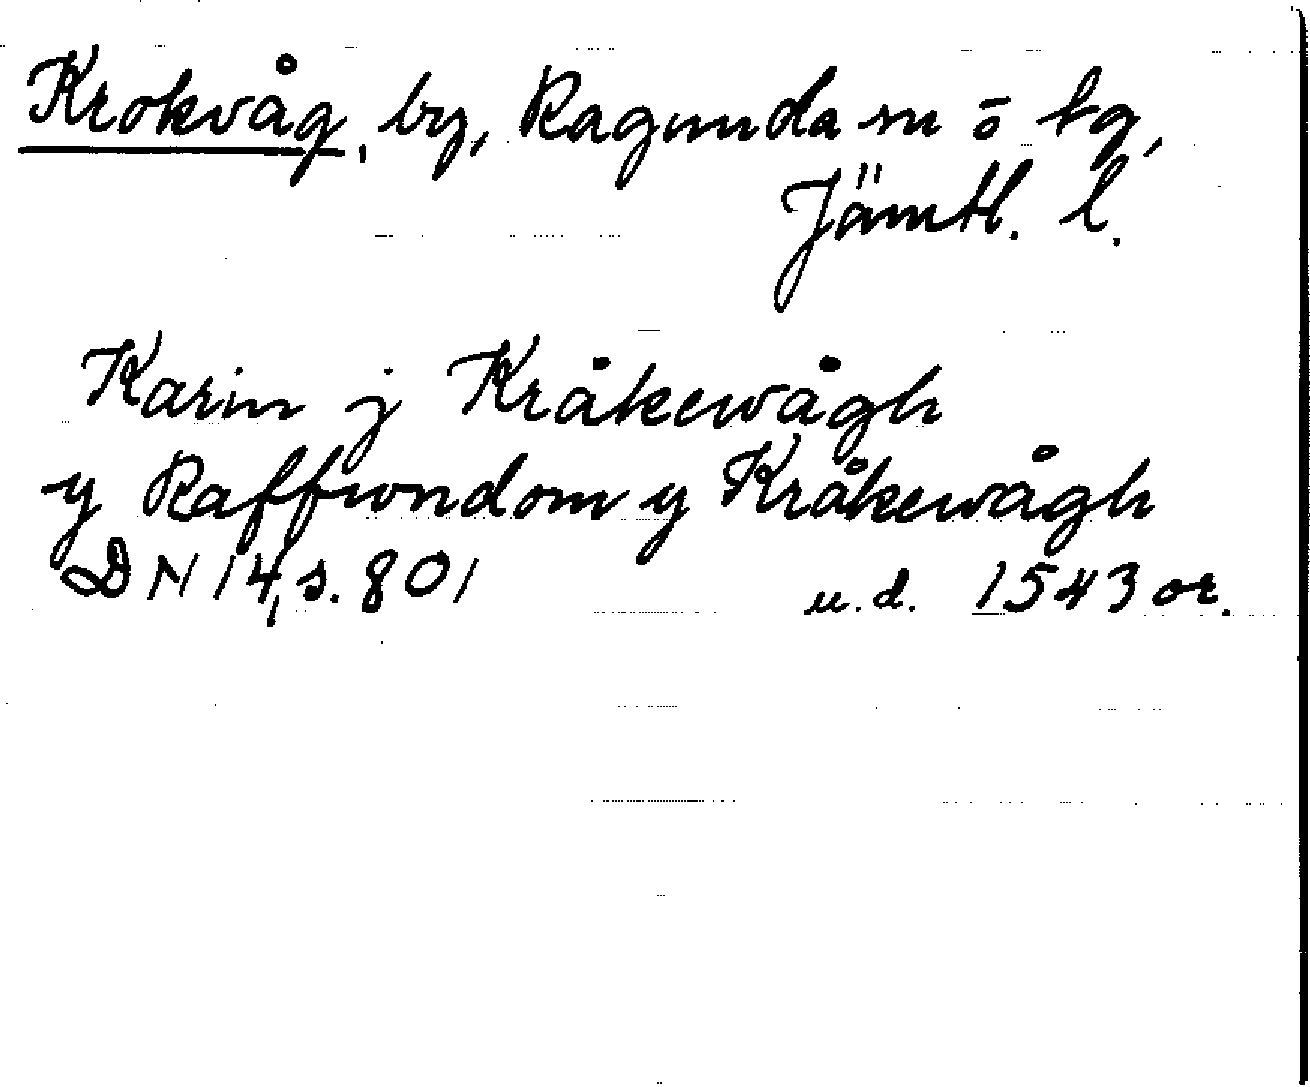 Krokvåg, by, Ragunda sn o tg,
Jämtl. l.
Karin j Kråkewågh
y Raffwndom y Kråkewågh
DN 14, s. 801 u.d. 1543 or.